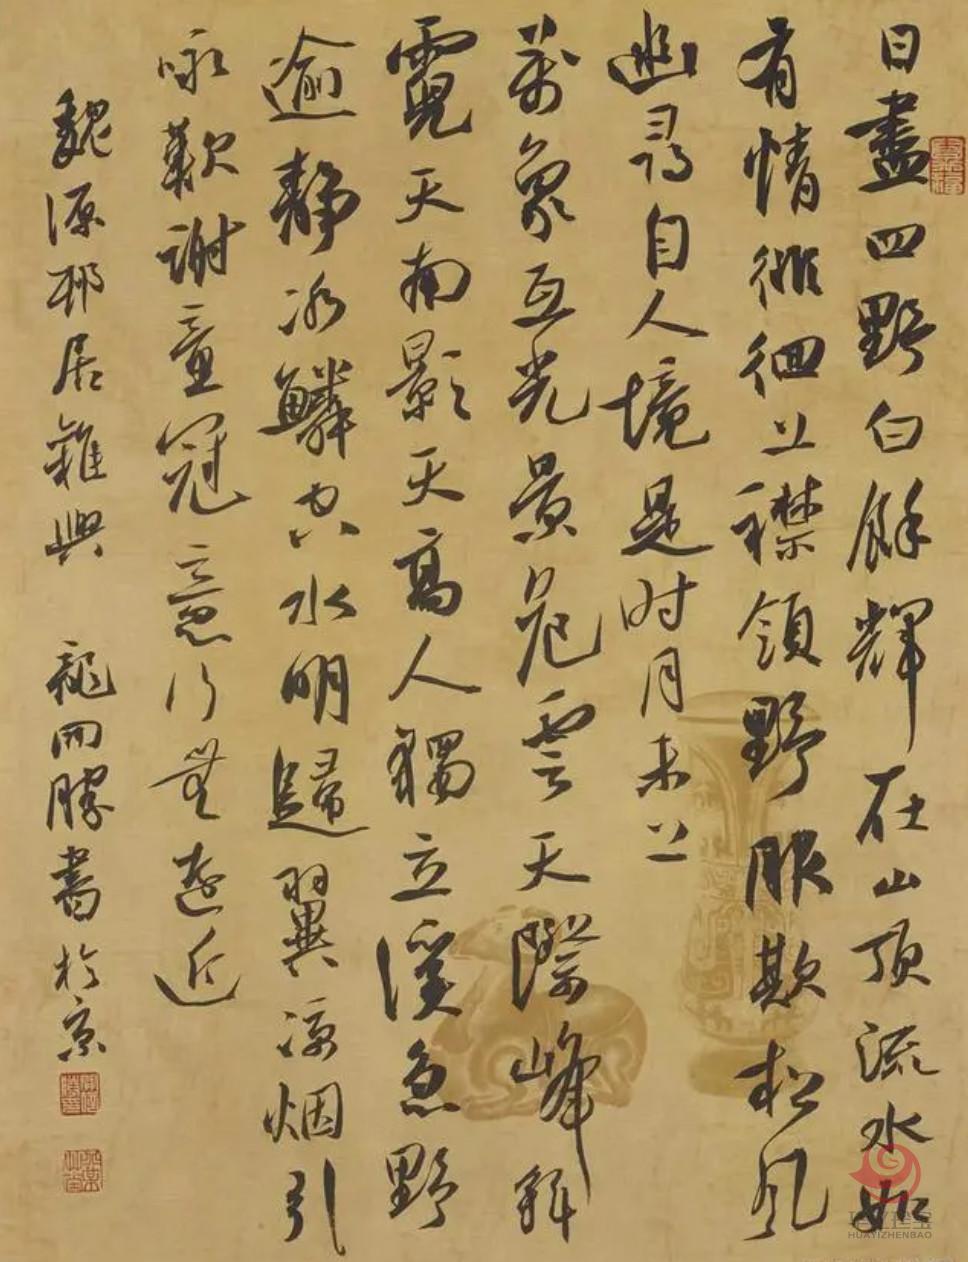 日盡四野白餘輝在山頂流水如
有情徘徊上襟領野服欺松風
幽尋自人境是时月未上
萬象互光景危雲天際峰
霓天南影天高人獨立溪急野
逾靜冰鱗空水明歸翼涼烟引
咏歎謝童冠意行無遠近
魏源邨居雜興 龍開勝書於京
HUAYIZHENBAO